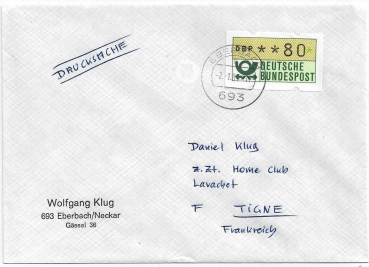 DRUCKSACHE
DBP **80
DEUTSCHE
BUNDESPOST
693
Daniel Klug
z.Zt. Home Club
Lavachet
F TIGNE
Frankreich
Wolfgang Klug
693 Eberbach/Neckar
Gässel 36